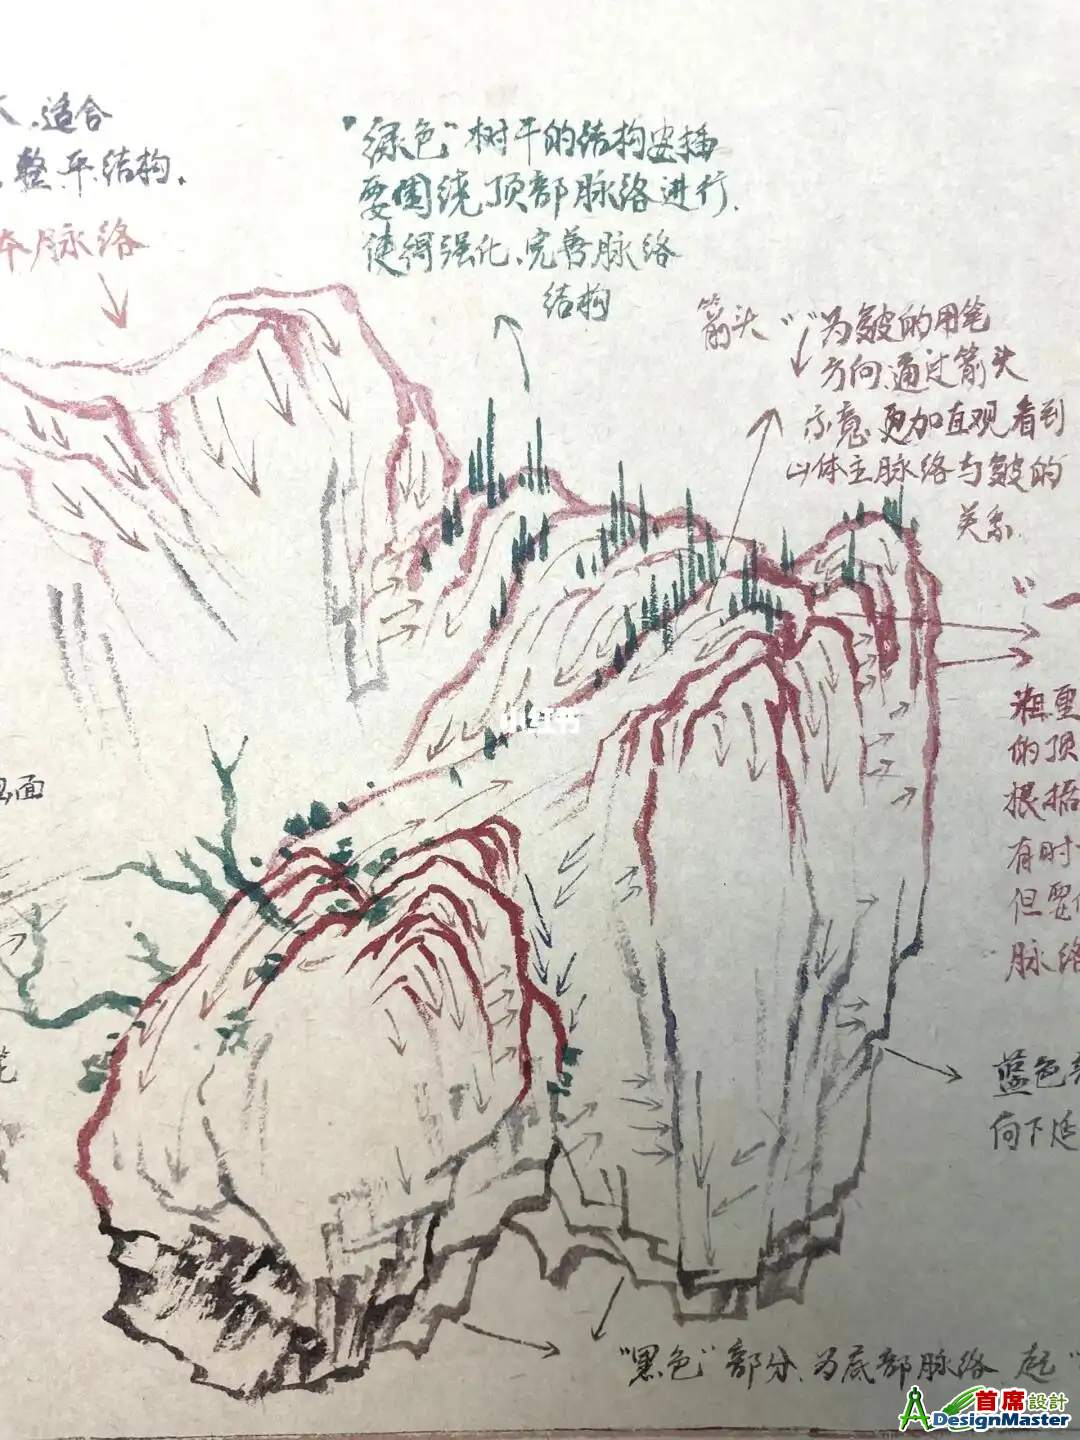 适合
整平结构.
本脉络
"绿色"树干的结构安插
要围绕顶部脉络进行.
使得强化、完善脉络
结构
箭头"↓"为皴的用笔
方向.通过箭头
示意.更加直观看到
山体主脉络与皴的
关系.
粗重
的顶
根据
有时
但要
脉络
画面
笔
小红书
蓝色
向下延
"黑色"部分.为底部脉络.起"
首席設計
DesignMaster